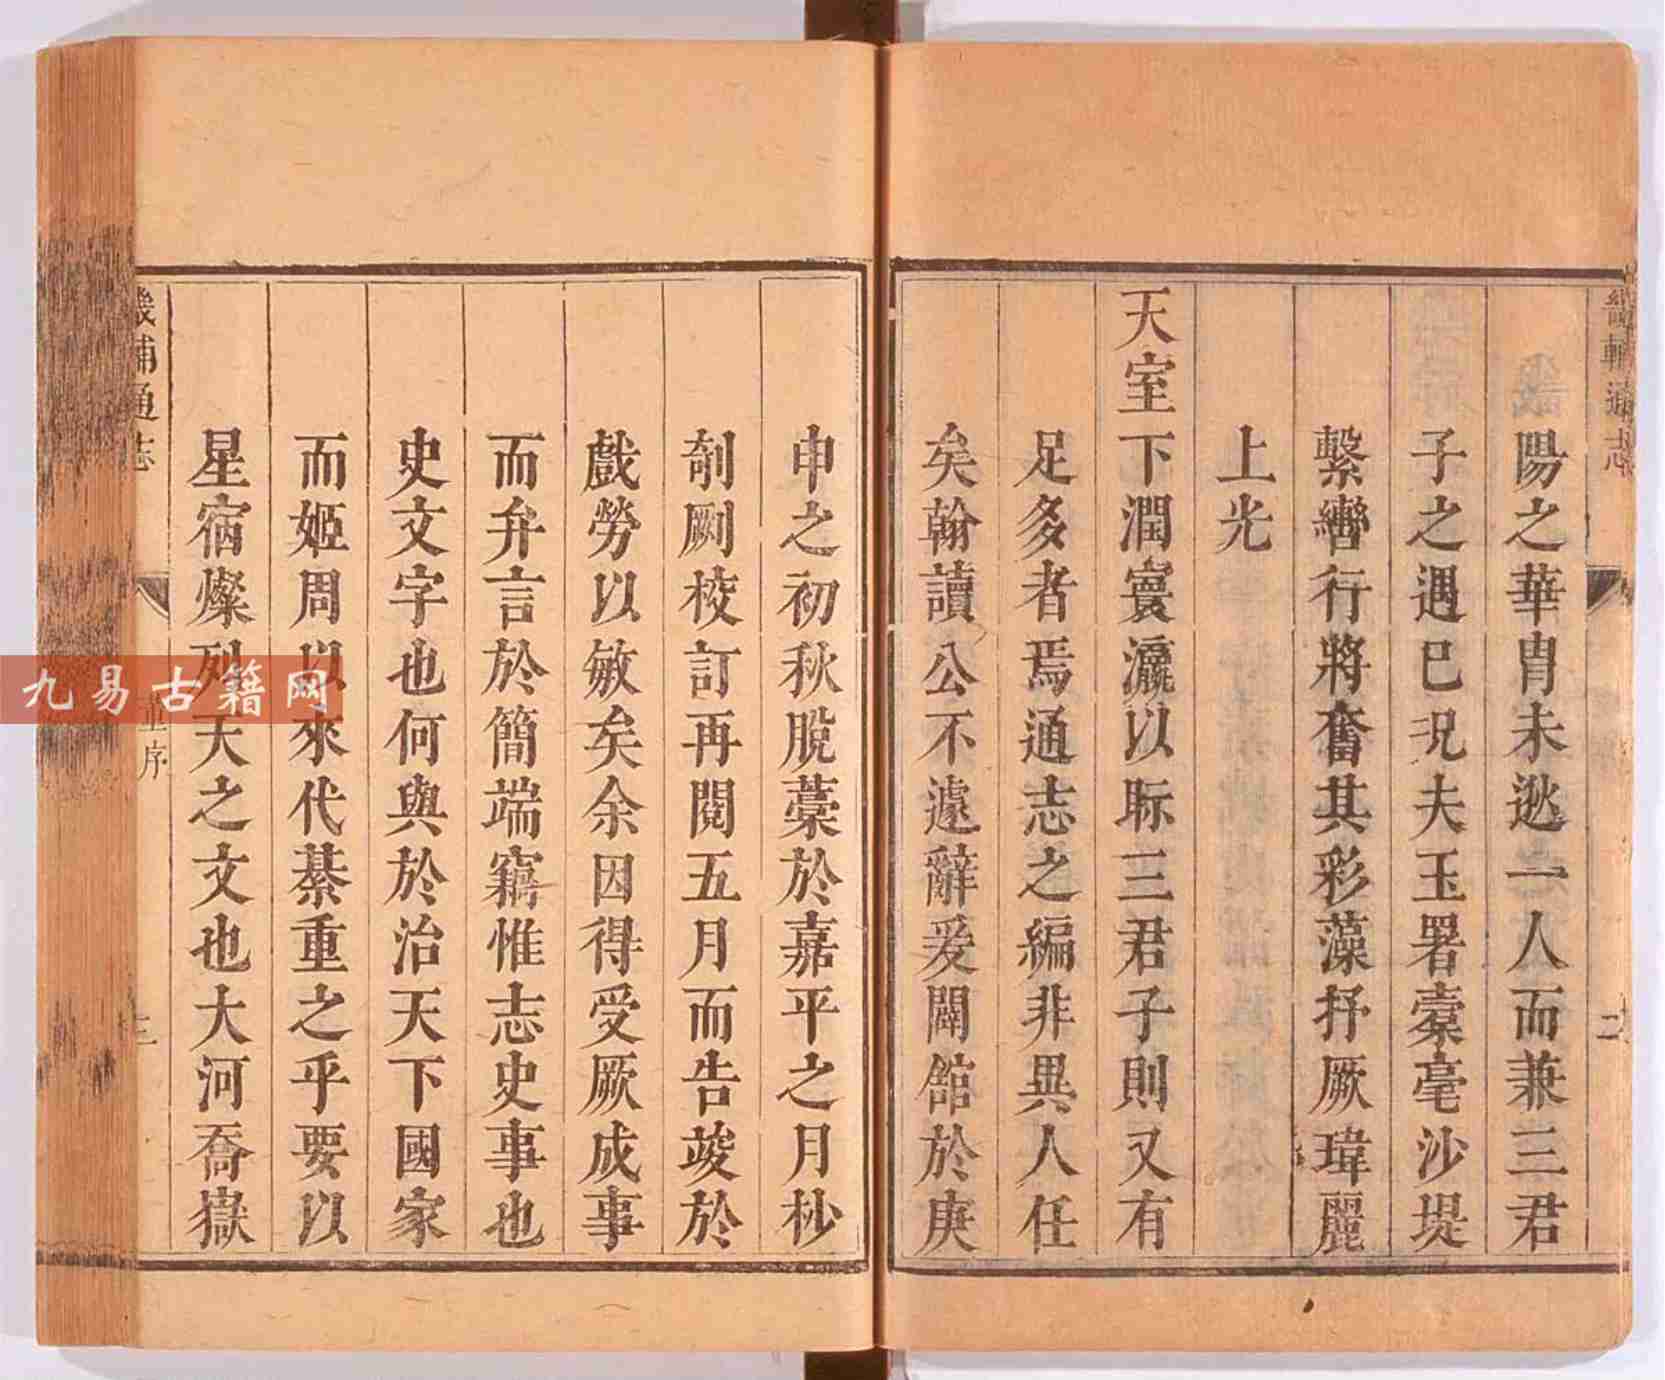 畿輔通志
二
陽之華胄未逖一人而兼三君
子之遇已況夫玉署橐毫沙堤
繫轡行將奮其彩藻抒厥瑋麗
上光
天室下潤寰瀛以眎三君子則又有
足多者焉通志之編非異人任
矣翰讀公不遽辭爰闢館於庚
申之初秋脫藁於嘉平之月杪
剞劂校訂再閱五月而告竣於
戲勞以敏矣余因得受厥成事
而弁言於簡端竊惟志史事也
史文字也何與於治天下國家
而姬周以來代綦重之乎要以
星宿燦列天之文也大河喬嶽
畿輔通志
序
三
九易古籍网